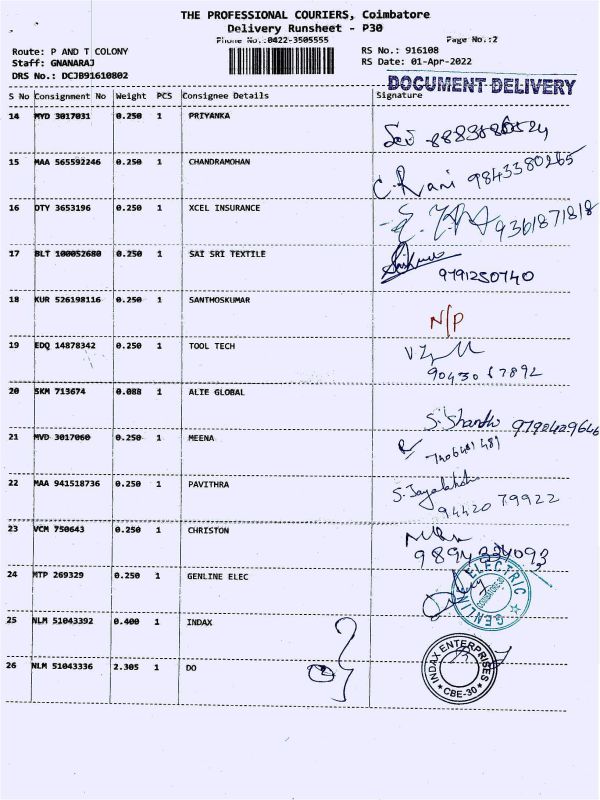 THE PROFESSIONAL COURIERS, Coimbatore
Delivery Runsheet - P30
Phone No.:0422-3505555
Page No.:2
Route: P AND T COLONY
RS No.: 916108
Staff: GNANARAJ
RS Date: 01-Apr-2022
DRS No.: DCJB91610802
DOCUMENT DELIVERY
S No Consignment No Weight PCS Consignee Details Signature
14 MYD 3017031 0.250 1 PRIYANKA
15 MAA 565592246 0.250 1 CHANDRAMOHAN C. Rani 9843380265
16 DTY 3653196 0.250 1 XCEL INSURANCE 9361871818
17 BLT 100052680 0.250 1 SAI SRI TEXTILE 9791250740
18 KUR 526198116 0.250 1 SANTHOSKUMAR N/P
19 EDQ 14878342 0.250 1 TOOL TECH
20 SKM 713674 0.088 1 ALIE GLOBAL S. Shanthi
21 MVD 3017060 0.250 1 MEENA
22 MAA 941518736 0.250 1 PAVITHRA 94420 79922
23 VCM 750643 0.250 1 CHRISTON
24 MTP 269329 0.250 1 GENLINE ELEC
GENLINE ELECTRIC
25 NLM 51043392 0.400 1 INDAX
26 NLM 51043336 2.305 1 DO
INDAX ENTERPRISES
CBE-30